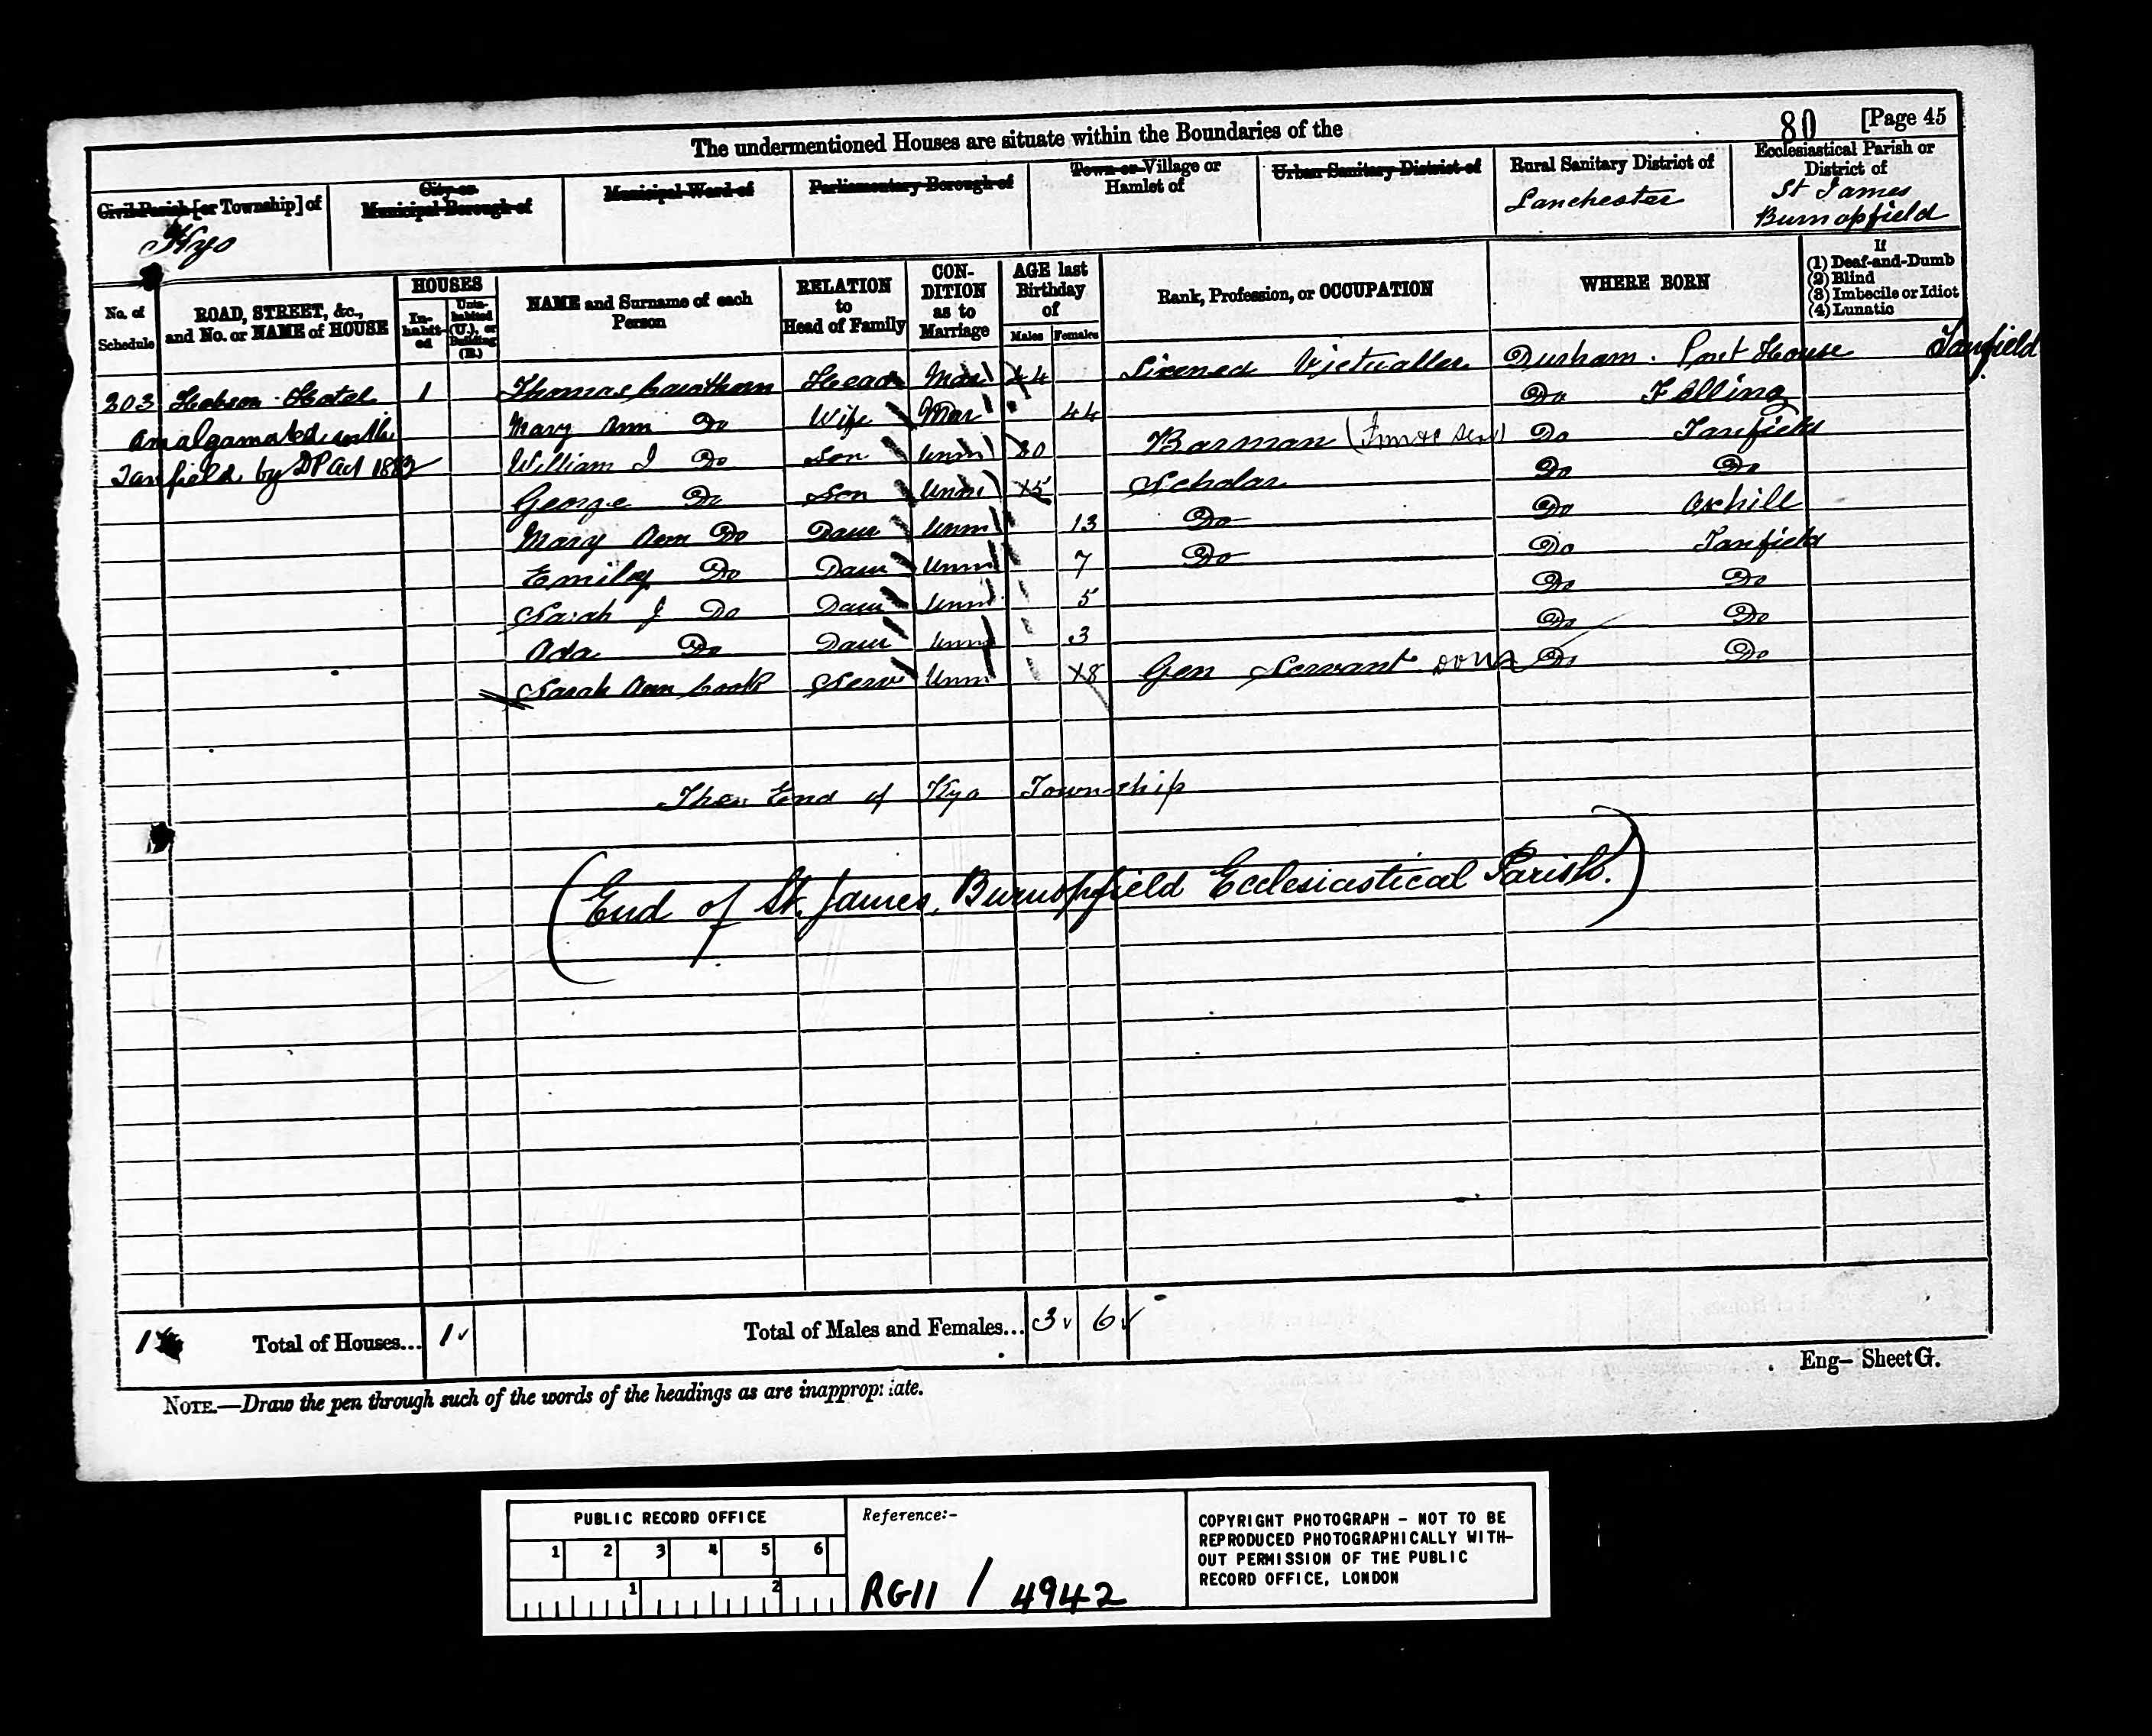 80 [Page 45
The undermentioned Houses are situate within the Boundaries of the
Civil Parish [or Township] of
City or Municipal Borough of
Municipal Ward of
Parliamentary Borough of
Town or Village or Hamlet of
Urban Sanitary District of
Rural Sanitary District of
Ecclesiastical Parish or District of
Kyo
Lanchester
St James
Burnopfield
No. of Schedule
ROAD, STREET, &c., and No. or NAME of HOUSE
HOUSES
In-habit-ed
Unin-habited (U.), or Building (B.)
NAME and Surname of each Person
RELATION to Head of Family
CON-DITION as to Marriage
AGE last Birthday of
Males Females
Rank, Profession, or OCCUPATION
WHERE BORN
If
(1) Deaf-and-Dumb
(2) Blind
(3) Imbecile or Idiot
(4) Lunatic
203 Hobson Hotel 1 Thomas Cawthorn Head Mar 44 Licened Victualler Durham Tanfield
amalgamated with Mary Ann Do Wife Mar 44 Do Felling
Tanfield by DP Act 1882 William I Do Son Unm 20 Barman Do Tanfield
George Do Son Unm 15 Scholar Do Do
Mary Ann Do Daur Unm 13 Do Do Oxhill
Emiley Do Daur Unm 7 Do Do Tanfield
Sarah J Do Daur Unm 5 Do Do
Ada Do Daur Unm 3 Do Do
Sarah Ann Cook Serv Unm 18 Gen Servant Dom Do Do
The End of Kyo Township
(End of St. James, Burnopfield Ecclesiastical Parish.)
1 Total of Houses... 1
Total of Males and Females... 3 6
Eng- Sheet G.
NOTE.—Draw the pen through such of the words of the headings as are inappropriate.
PUBLIC RECORD OFFICE
1 2 3 4 5 6
1 2
Reference:-
RG11 / 4942
COPYRIGHT PHOTOGRAPH - NOT TO BE
REPRODUCED PHOTOGRAPHICALLY WITH-
OUT PERMISSION OF THE PUBLIC
RECORD OFFICE, LONDON